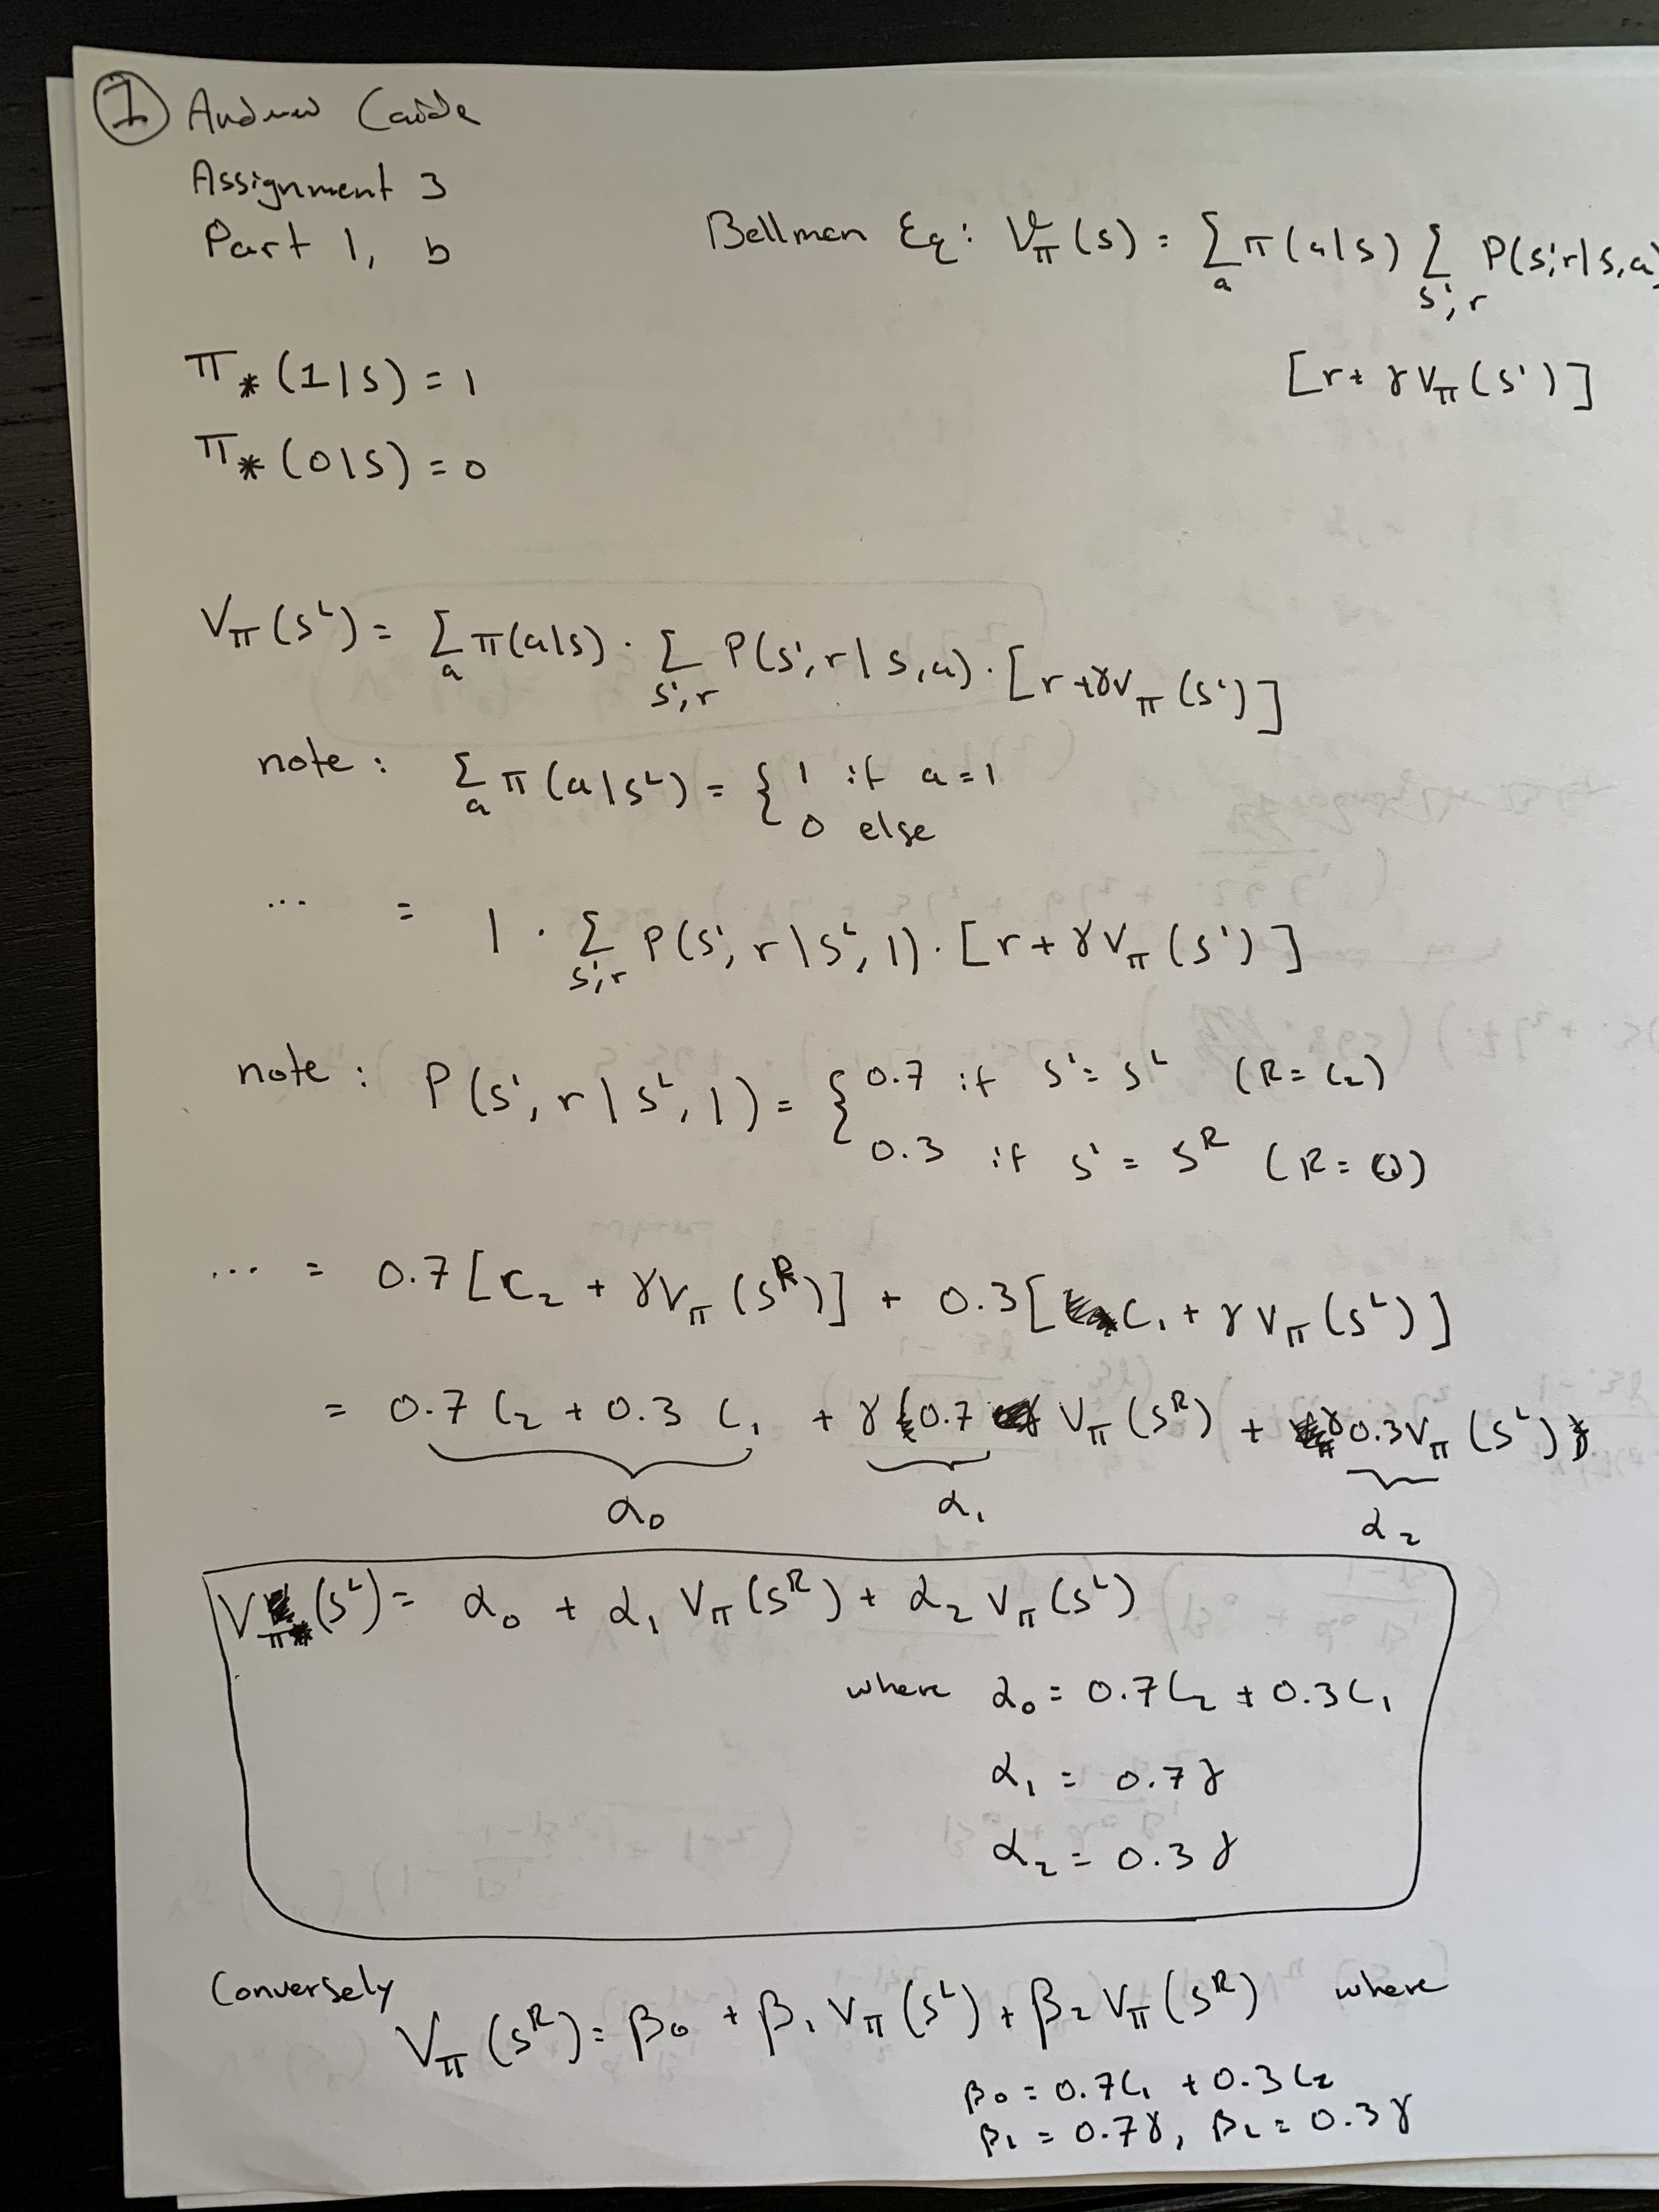 ① Andrew Caide
Assignment 3
Part 1, b
Bellman Eq: V_π(s) = Σ_a π(a|s) Σ_{s',r} P(s',r|s,a)
[r + γ V_π(s')]
π_*(1|s) = 1
π_*(0|s) = 0
V_π(s^L) = Σ_a π(a|s) · Σ_{s',r} P(s',r|s,a) · [r + γV_π(s')]
note: Σ_a π(a|s^L) = { 1 if a=1
0 else
... = 1 · Σ_{s',r} P(s',r|s^L,1) · [r + γ V_π(s')]
note: P(s',r|s^L,1) = { 0.7 if s' = s^L (R = C_2)
0.3 if s' = s^R (R = )
... = 0.7[C_2 + γV_π(s^R)] + 0.3[C_1 + γ V_π(s^L)]
= 0.7 C_2 + 0.3 C_1 + γ 0.7 V_π(s^R) + γ 0.3 V_π(s^L)
α_0 α_1 α_2
V_π(s^L) = α_0 + α_1 V_π(s^R) + α_2 V_π(s^L)
where α_0 = 0.7C_2 + 0.3C_1
α_1 = 0.7γ
α_2 = 0.3γ
Conversely
V_π(s^R) = β_0 + β_1 V_π(s^L) + β_2 V_π(s^R) where
β_0 = 0.7C_1 + 0.3C_2
β_1 = 0.7γ, β_2 = 0.3γ